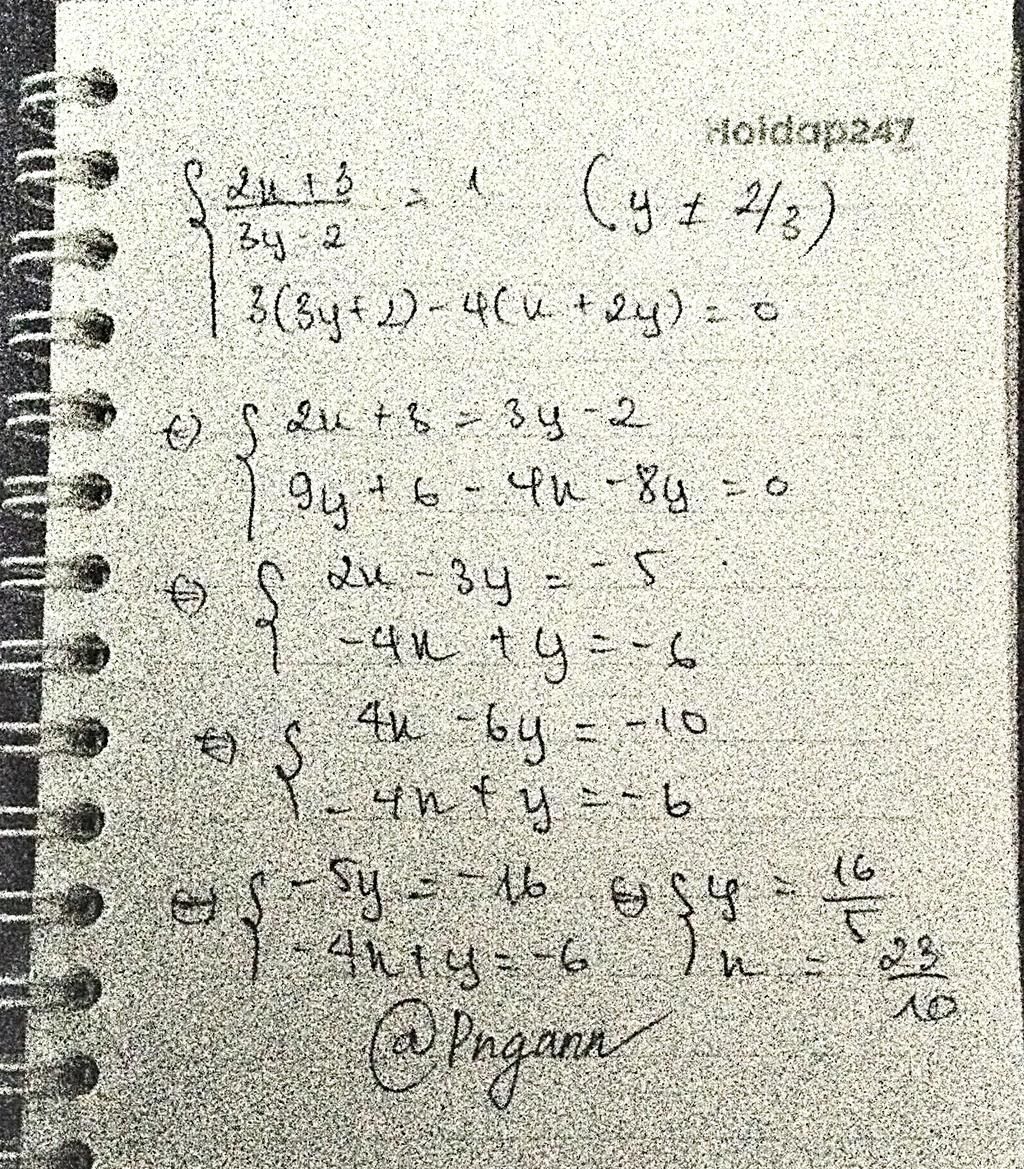 Hoidap247
{ (2x + 3)/(3y - 2) = 1 (y ≠ 2/3)
3(3y + 2) - 4(x + 2y) = 0
⇔ { 2x + 3 = 3y - 2
9y + 6 - 4x - 8y = 0
⇔ { 2x - 3y = -5
-4x + y = -6
⇔ { 4x - 6y = -10
-4x + y = -6
⇔ { -5y = -16 ⇔ { y = 16/5
-4x + y = -6 x = 23/10
@Pngann